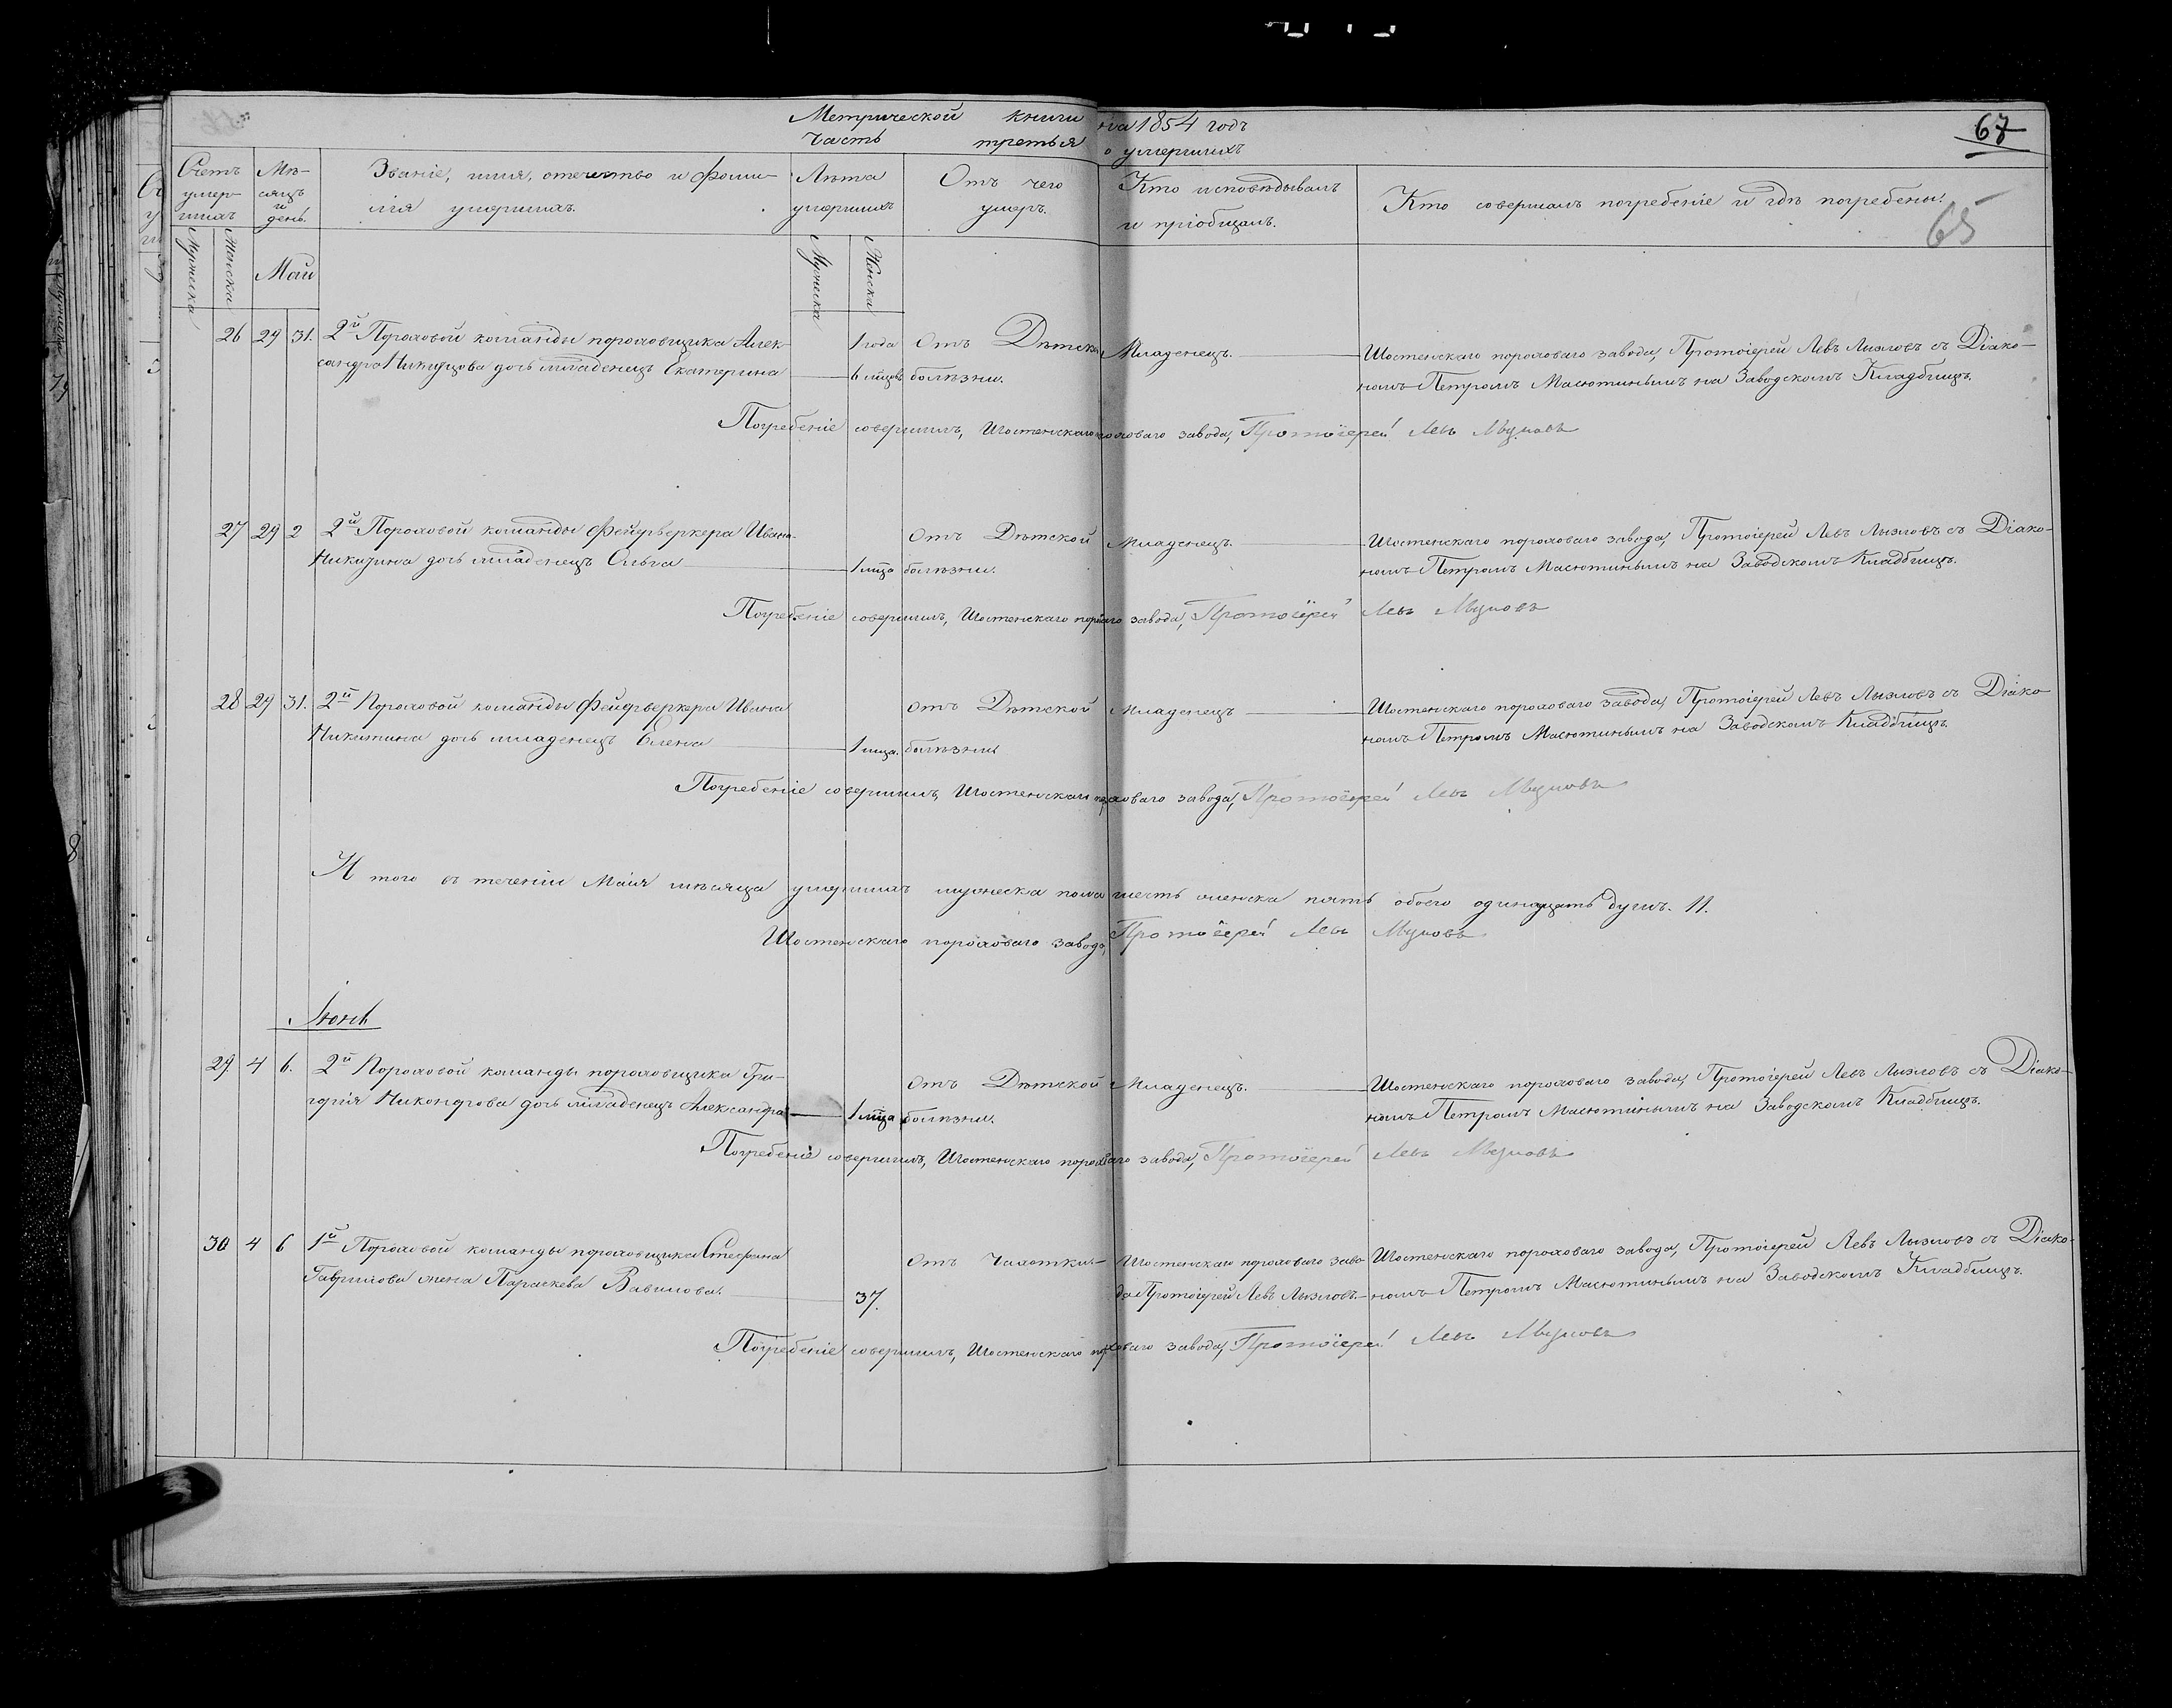 Метрической книги на 1854 годъ
часть третья о умершихъ
67
65
Счетъ умершихъ
Мѣсяцъ и день.
Званіе, имя, отечество и фамилія умершихъ.
Лѣта умершихъ
Отъ чего умеръ.
Кто исповѣдывалъ и пріобщалъ.
Кто совершалъ погребеніе и гдѣ погребены.
Мужеска
Женска
Май
Мужеска
Женска
26 29 31. 2й Пороховой команды пороховщика Алек- 1 года Отъ Дѣтской Младенецъ. Шостенскаго пороховаго завода, Протоіерей Левъ Лызловъ съ Діако-
сандра дочь младенецъ Екатерина 6 мцовъ болѣзни. номъ Петромъ Масютинымъ на Заводскомъ Кладбищѣ.
Погребеніе совершилъ, Шостенскаго пороховаго завода, Протоіерей Левъ Лызловъ
27 29 2 2й Пороховой команды Фейерверкера Ивана Отъ Дѣтской Младенецъ. Шостенскаго пороховаго завода, Протоіерей Левъ Лызловъ съ Діако-
Никитина дочь младенецъ Ольга 1 мца болѣзни. номъ Петромъ Масютинымъ на Заводскомъ Кладбищѣ.
Погребеніе совершилъ, Шостенскаго порохваго завода, Протоіерей Левъ Лызловъ
28 29 31. 2й Пороховой команды Фейерверкера Ивана Отъ Дѣтской Младенецъ Шостенскаго пороховаго завода, Протоіерей Левъ Лызловъ съ Діако
Никитина дочь младенецъ Елена 1 мца. болѣзни номъ Петромъ Масютинымъ на Заводскомъ Кладбищѣ.
Погребеніе совершилъ, Шостенскаго пороховаго завода, Протоіерей Левъ Лызловъ
И того въ теченіи Маія мѣсяца умершихъ мужеска пола шесть женска пять обоего одинадцать душъ. 11.
Шостенскаго пороховаго завода, Протоіерей Левъ Лызловъ
Іюнь
29 4 6. 2й Пороховой команды пороховщика Гри- Отъ Дѣтской Младенецъ. Шостенскаго пороховаго завода, Протоіерей Левъ Лызловъ съ Діако-
горія Никонорова дочь младенецъ Александра 1 мца болѣзни. номъ Петромъ Масютинымъ на Заводскомъ Кладбищѣ.
Погребеніе совершилъ, Шостенскаго пороховаго завода, Протоіерей Левъ Лызловъ
30 4 6 1й Пороховой команды пороховщика Стефана Отъ Чахотки Шостенскаго пороховаго заво- Шостенскаго пороховаго завода, Протоіерей Левъ Лызловъ съ Діако-
Гаврилова жена Параскева Вавилова. 37. да Протоіерей Левъ Лызловъ. номъ Петромъ Масютинымъ на Заводскомъ Кладбищѣ.
Погребеніе совершилъ, Шостенскаго пороховаго завода, Протоіерей Левъ Лызловъ